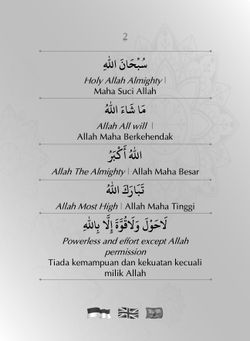 2
سُبْحَانَ اللهِ
Holy Allah Almighty |
Maha Suci Allah
مَا شَاءَ اللهُ
Allah All will |
Allah Maha Berkehendak
اللهُ أَكْبَرُ
Allah The Almighty | Allah Maha Besar
تَبَارَكَ اللهُ
Allah Most High | Allah Maha Tinggi
لَاحَوْلَ وَلَاقُوَّةَ إِلَّا بِاللهِ
Powerless and effort except Allah
permission
Tiada kemampuan dan kekuatan kecuali
milik Allah